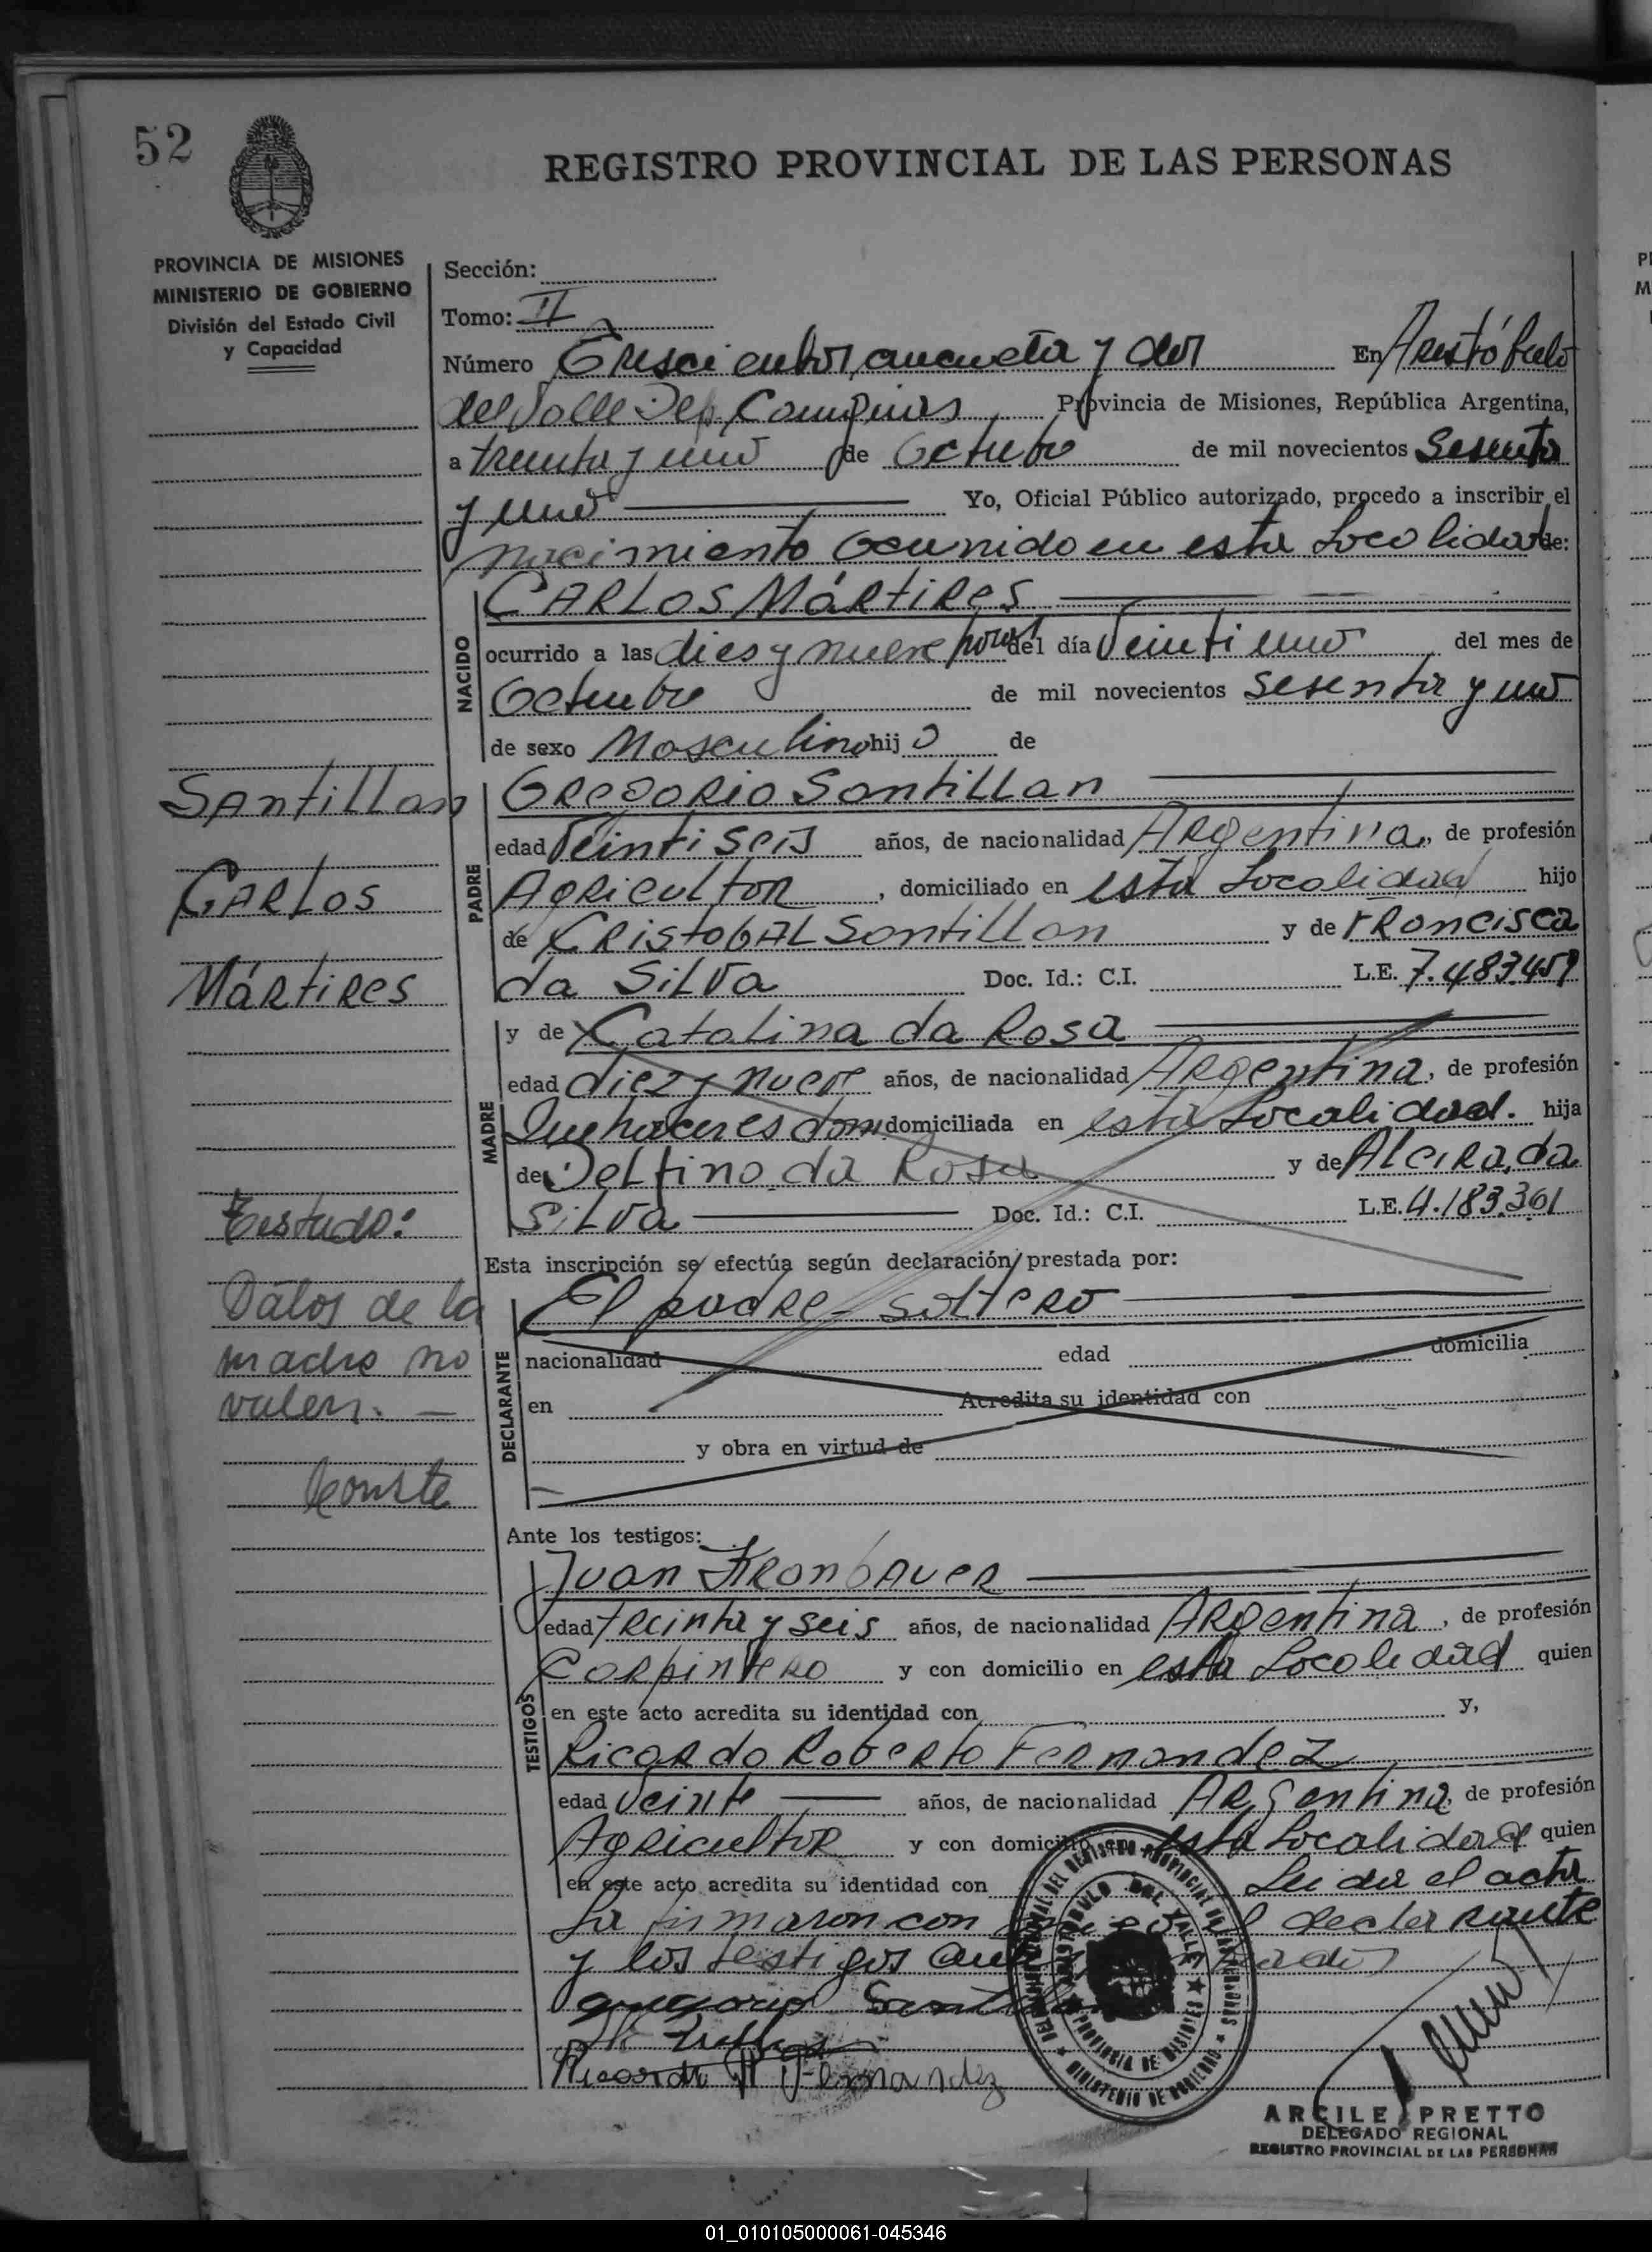 52
REGISTRO PROVINCIAL DE LAS PERSONAS
PROVINCIA DE MISIONES
MINISTERIO DE GOBIERNO
División del Estado Civil
y Capacidad
Sección:
Tomo: II
Número Trescientos cincuenta y dos En Aristóbulo
del Valle Dep. Cainguás, Provincia de Misiones, República Argentina,
a treinta y uno de Octubre de mil novecientos Sesenta
y uno Yo, Oficial Público autorizado, procedo a inscribir el
nacimiento ocurrido en esta Localidad de:
NACIDO
CARLOS MáRtiRes
ocurrido a las dies y nueve horas del día Veinti uno del mes de
Octubre de mil novecientos sesenta y uno
de sexo Masculino hijo de
Santillan
Carlos
Mártires
PADRE
GREGORIO Santillan
edad Veinti seis años, de nacionalidad Argentina, de profesión
Agricultor, domiciliado en esta Localidad hijo
de Cristobal Santillan y de Francisca
da Silva Doc. Id.: C.I. L.E. 7.483.459
MADRE
y de Catalina da Rosa
edad diez y nueve años, de nacionalidad Argentina, de profesión
Quehaceres dom domiciliada en esta Localidad. hija
de Delfino da Rosa y de Alcira da
Silva Doc. Id.: C.I. L.E. 4.183.301
Testado:
Datos de la
madre no
valen. —
Conste
Esta inscripción se efectúa según declaración prestada por:
DECLARANTE
El padre - soltero
nacionalidad edad domicilia
en Acredita su identidad con
y obra en virtud de
Ante los testigos:
TESTIGOS
Juan Kronbauer
edad treinta y seis años, de nacionalidad Argentina, de profesión
Carpintero y con domicilio en esta Localidad quien
en este acto acredita su identidad con y,
Ricardo Roberto Fernandez
edad Veinte años, de nacionalidad Argentina, de profesión
Agricultor y con domicilio en esta Localidad quien
en este acto acredita su identidad con Leida el acta
La firmaron con el declarante
y los testigos
Gregorio Santillan
Ricardo R Fernandez
ARISTOBULO DEL VALLE
PROVINCIA DE MISIONES
MINISTERIO DE GOBIERNO
ARCILE PRETTO
DELEGADO REGIONAL
REGISTRO PROVINCIAL DE LAS PERSONAS
01_010105000061-045346